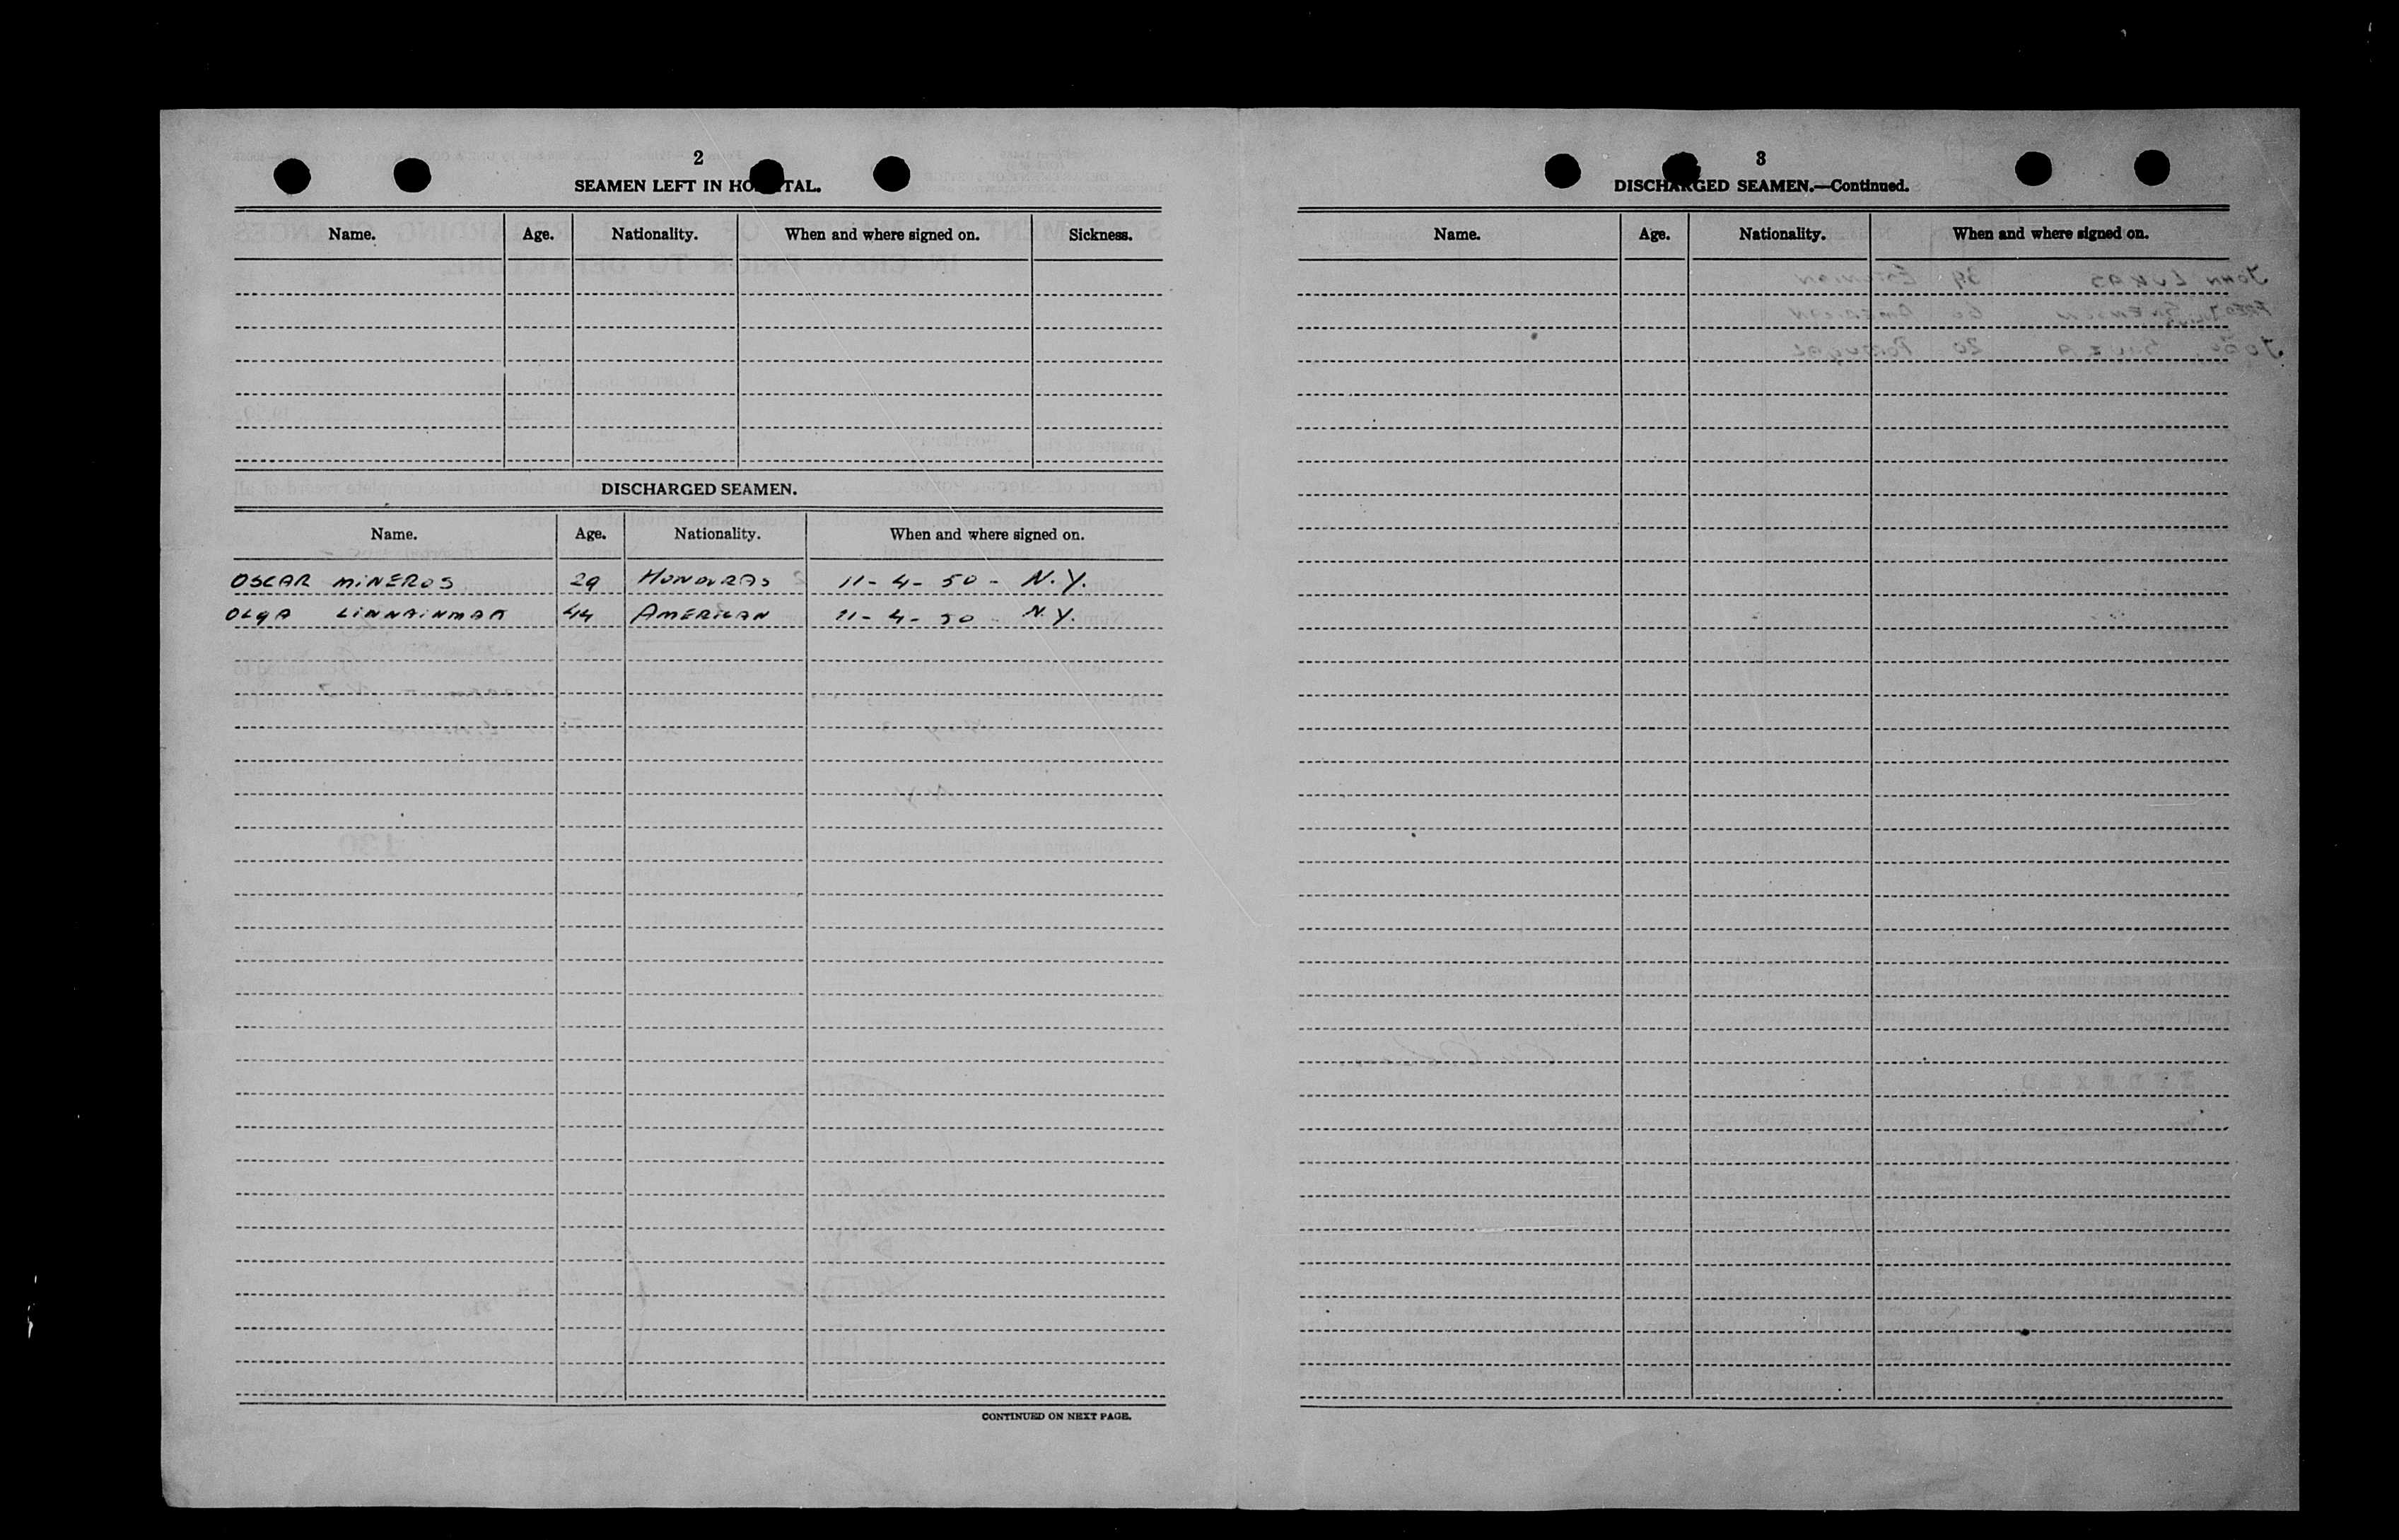 2
SEAMEN LEFT IN HOSPITAL.
Name. Age. Nationality. When and where signed on. Sickness.
DISCHARGED SEAMEN.
Name. Age. Nationality. When and where signed on.
OSCAR MINEROS 29 HONDURAS 11-4-50 - N.Y.
OLGA LINNAINMAA 44 AMERICAN 11-4-50 - N.Y.
CONTINUED ON NEXT PAGE.
3
DISCHARGED SEAMEN.—Continued.
Name. Age. Nationality. When and where signed on.